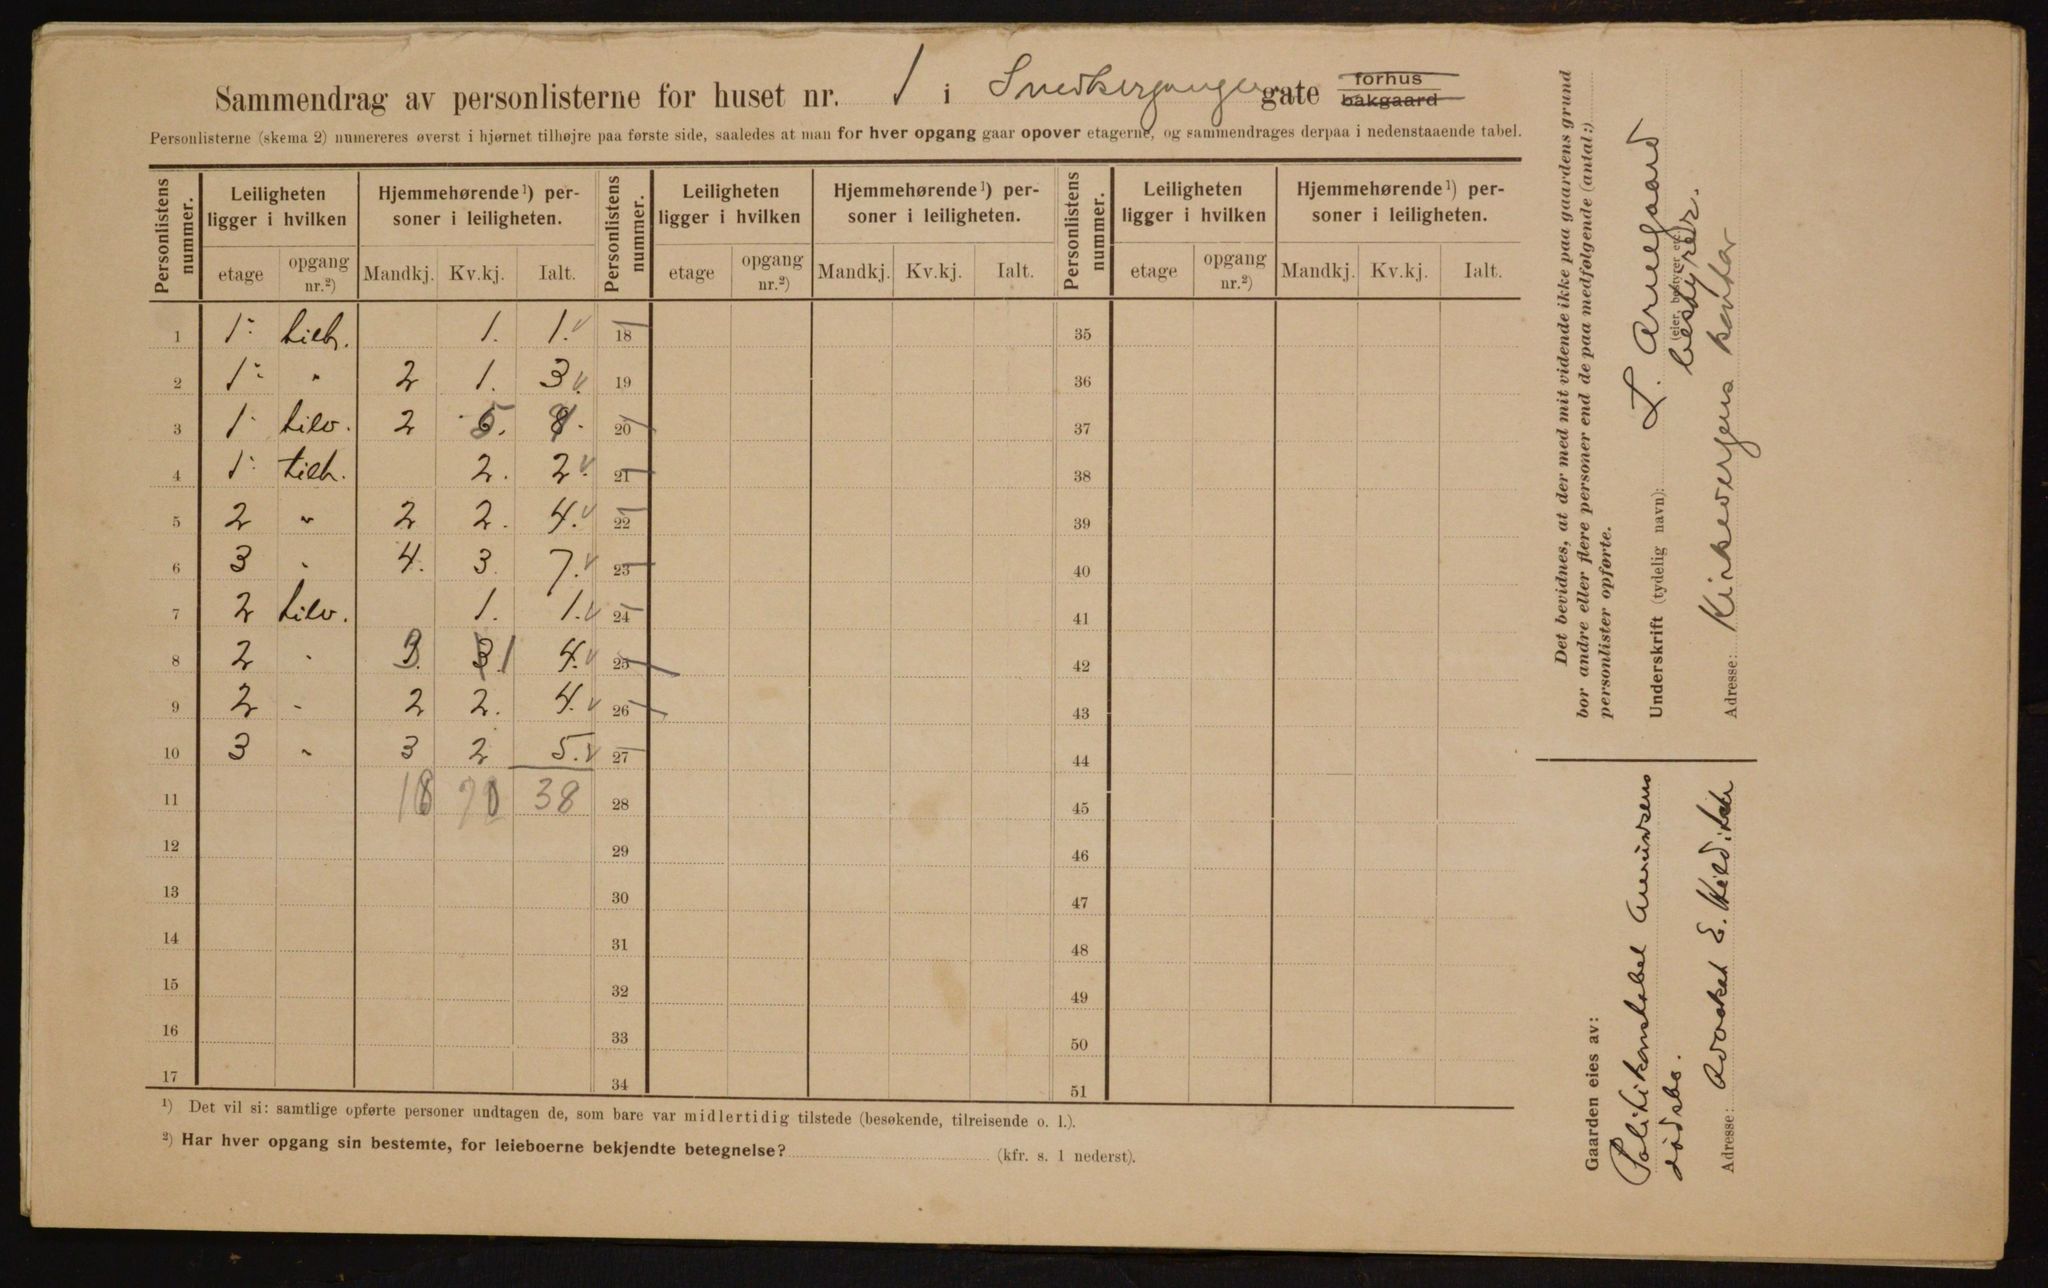 Sammendrag av personlisterne for huset nr. 1 i Snedkergangen gate forhus bakgaard
Personlisterne (skema 2) numereres øverst i hjørnet tilhøjre paa første side, saaledes at man for hver opgang gaar opover etagerne, og sammendrages derpaa i nedenstaaende tabel.
Personlistens nummer. Leiligheten ligger i hvilken Hjemmehørende ¹) personer i leiligheten. Personlistens nummer. Leiligheten ligger i hvilken Hjemmehørende ¹) personer i leiligheten. Personlistens nummer. Leiligheten ligger i hvilken Hjemmehørende ¹) personer i leiligheten.
etage opgang nr.²) Mandkj. Kv.kj. Ialt. etage opgang nr.²) Mandkj. Kv.kj. Ialt. etage opgang nr.²) Mandkj. Kv.kj. Ialt.
1 1. tilh. 1. 1. 18 35
2 1. " 2 1. 3. 19 36
3 1. tilv. 2 5. 20 37
4 1. tilh. 2. 2. 21 38
5 2 " 2 2. 4. 22 39
6 3 " 4. 3. 7. 23 40
7 2 tilv. 1. 1. 24 41
8 2 " 3. 1 4. 25 42
9 2 " 2 2. 4. 26 43
10 3 " 3 2 5. 27 44
11 18 20 38 28 45
12 29 46
13 30 47
14 31 48
15 32 49
16 33 50
17 34 51
¹) Det vil si: samtlige opførte personer undtagen de, som bare var midlertidig tilstede (besøkende, tilreisende o. l.).
²) Har hver opgang sin bestemte, for leieboerne bekjendte betegnelse? (kfr. s. 1 nederst).
Det bevidnes, at der med mit vidende ikke paa gaardens grund
bor andre eller flere personer end de paa medfølgende (antal:)
personlister opførte.
Underskrift (tydelig navn): L. Arnegaard
(eier, bestyrer etc.)
bestyrer.
Adresse: Kirkevergens kontor
Gaarden eies av:
Politikonstabel Amundsens
dødsbo.
Adresse: Advokat E.